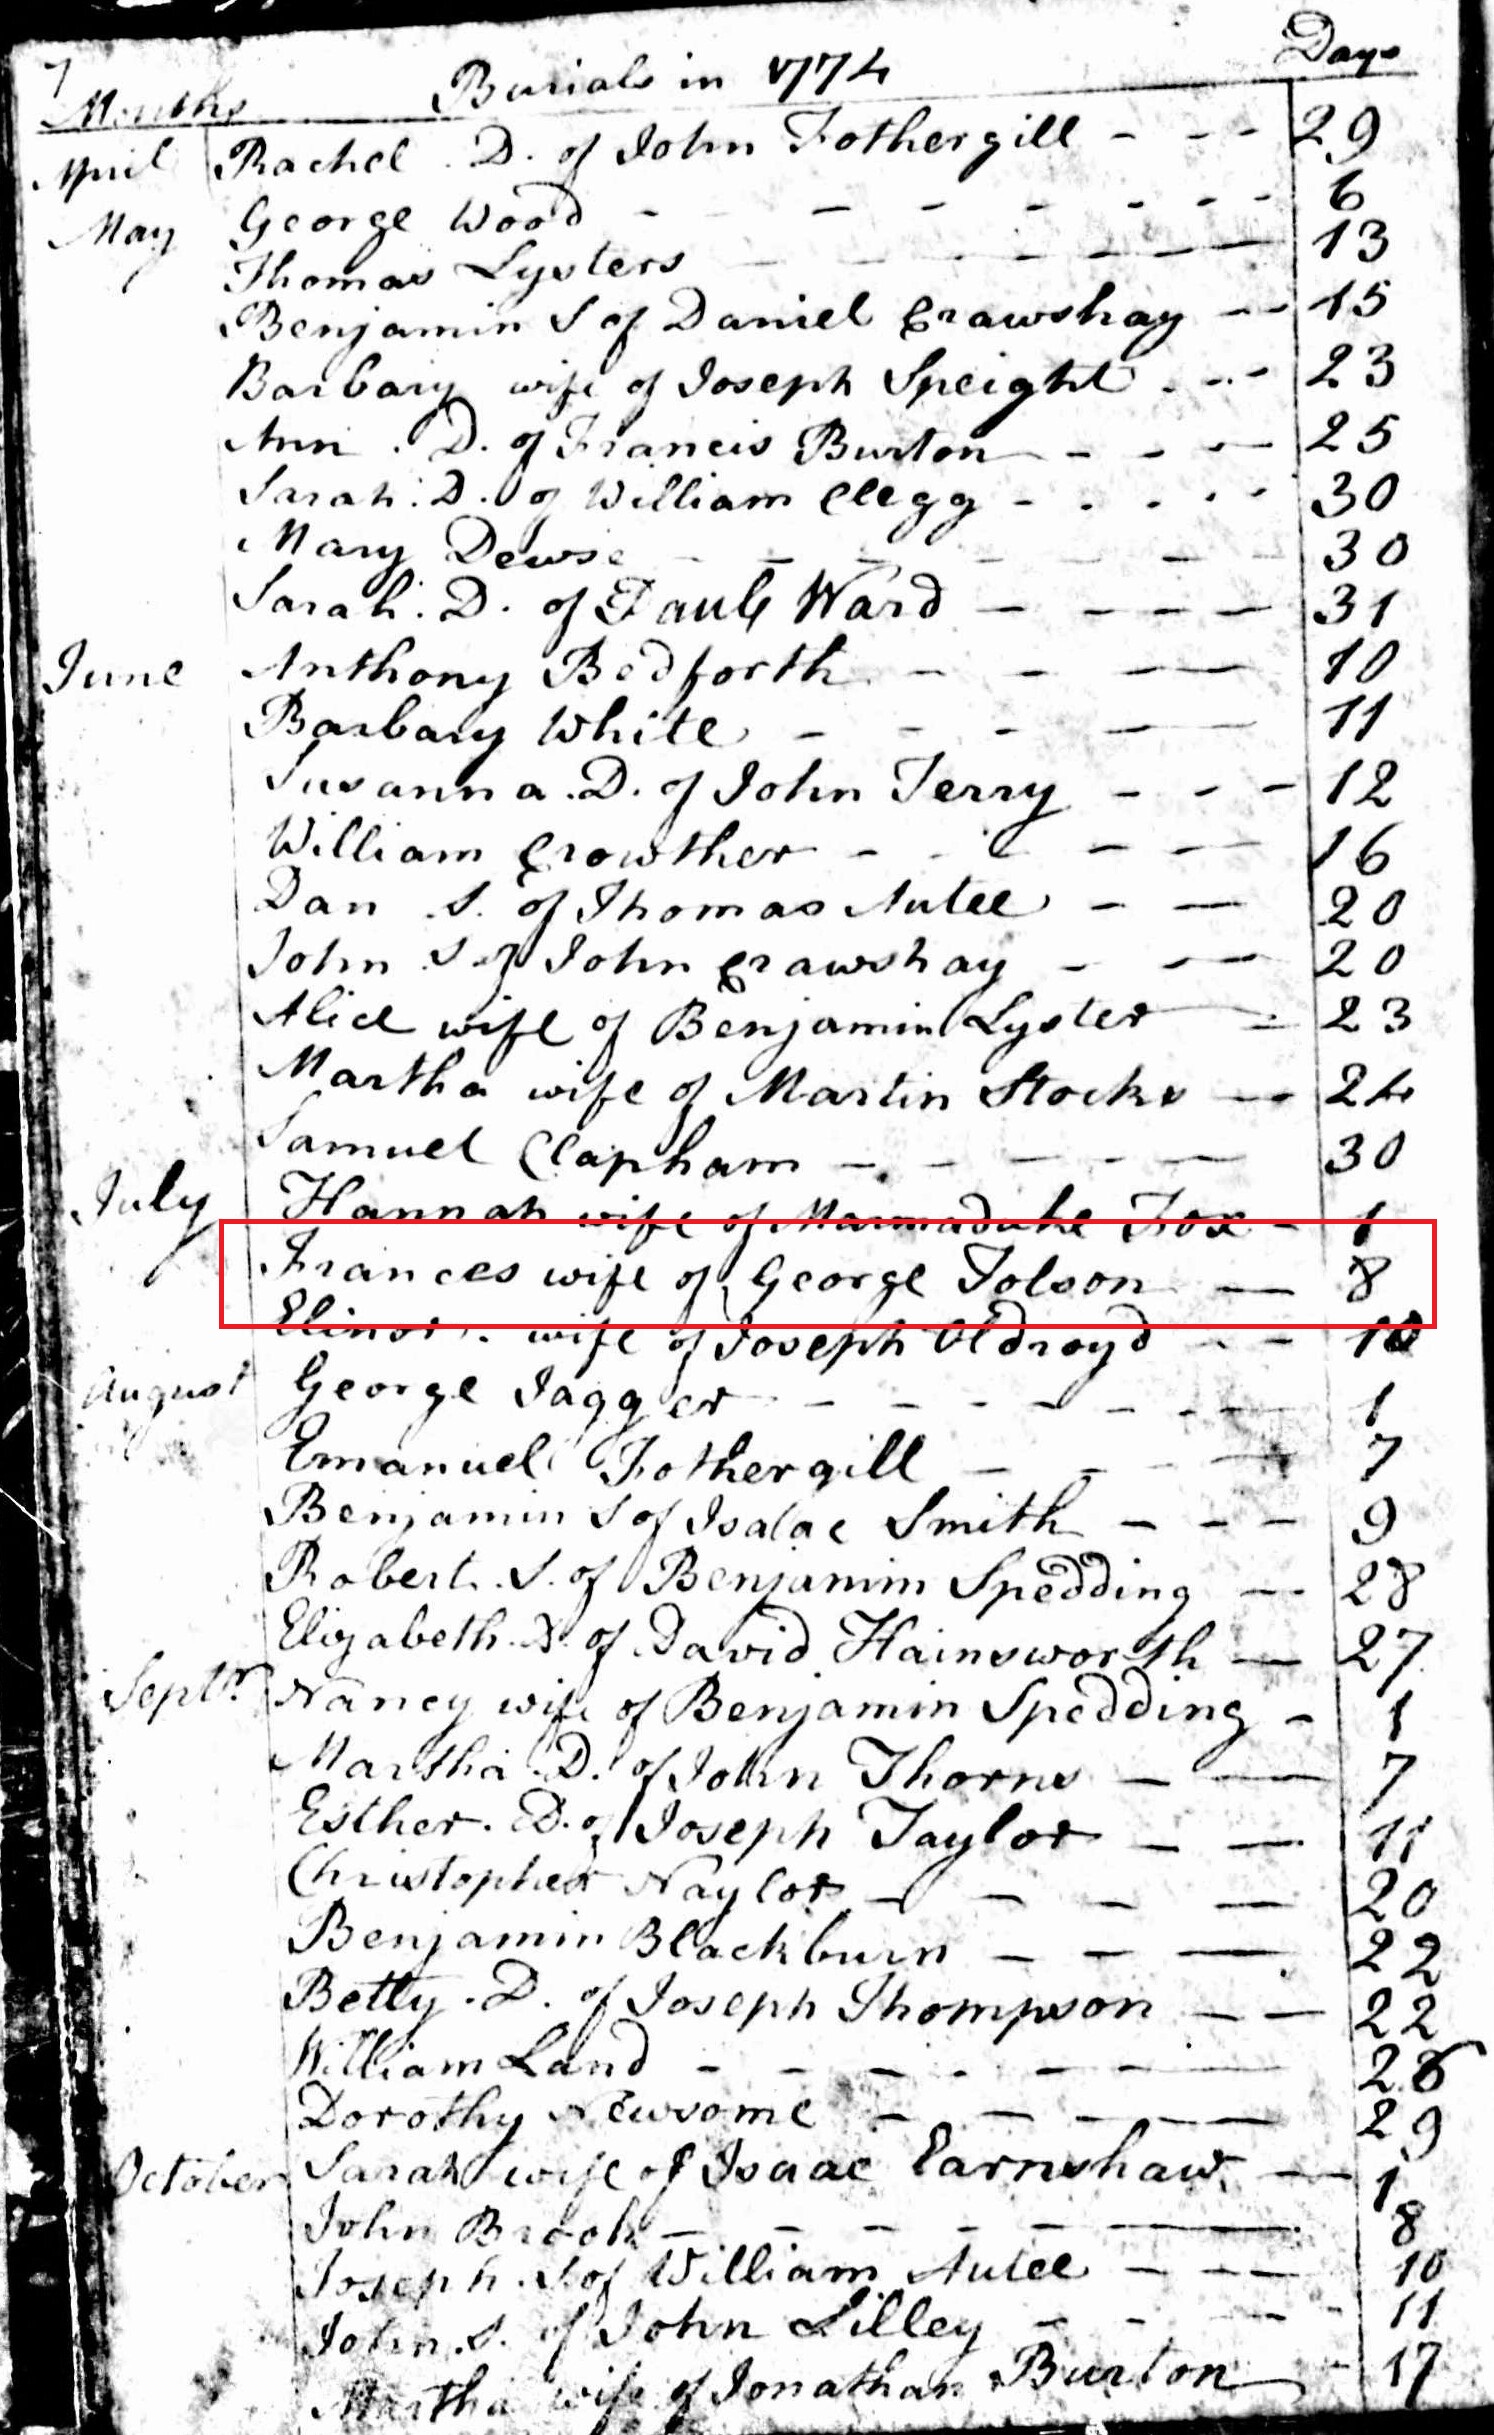 7
Months Burials in 1774 Days
April Rachel . D. of John Fothergill - - - 29
May George Wood - - - - - - - 6
Thomas Lysters - - - - - - 13
Benjamin S of Daniel Crawshay - - 15
Barbary wife of Joseph Speight - - - 23
Ann . D. of Francis Burton - - - 25
Sarah . D. of William Clegg - - - - - 30
Mary Dewse - - - - - - - 30
Sarah . D. of Paul Ward - - - - 31
June Anthony Bedforth - - - - 10
Barbary White - - - - - 11
Susanna . D. of John Terry - - - 12
William Crowther - - - - - 16
Dan S. of Thomas Autee - - 20
John S of John Crawshay - - - 20
Alice wife of Benjamin Lyster - 23
Martha wife of Martin Stocks - - 24
Samuel Clapham - - - - - 30
July Hannah wife of Marmaduke Fox - 1
Frances wife of George Tolson - 8
Elinor . wife of Joseph Oldroyd - - 10
August George Jagger - - - - - - - 1
Emanuel Fothergill - - - - 7
Benjamin S of Isaac Smith - - - 9
Robert . S. of Benjamin Spedding - 28
Elizabeth . D. of David Hainsworth - 27
Septr. Nancy wife of Benjamin Spedding - 1
Martha . D. of John Thorns - - 7
Esther . D. of Joseph Taylor - - 11
Christopher Naylor - - - - 20
Benjamin Blackburn - - - 22
Betty . D. of Joseph Thompson - - 22
William Land - - - - - - 26
Dorothy Newsome - - - - 29
October Sarah wife of Isaac Earnshaw - 1
John Brook - - - - - - 8
Joseph . S. of William Autee - - - 10
John . S. of John Lilley - - - - 11
Martha wife of Jonathan Burton - 17